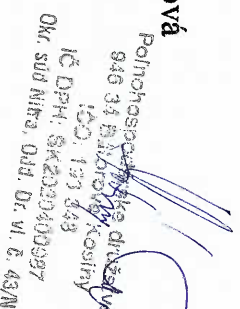 ová
Poľnohospodárske družstvo
946 34 Bátorove Kosihy
IČO: 193 348
IČ DPH: SK2020400097
Okr. súd Nitra, Odd. Dr. vl. č. 43/N